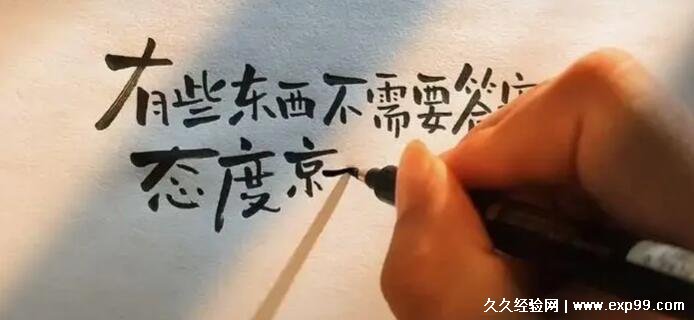 有些东西不需要答
态度京
久久经验网 | www.exp99.com